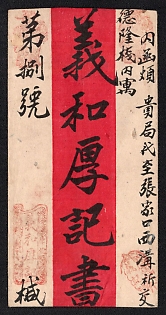 内函煩 貴局代至張家口西溝祈交
德隆棧内寓
義和厚記書
第捌號
椷